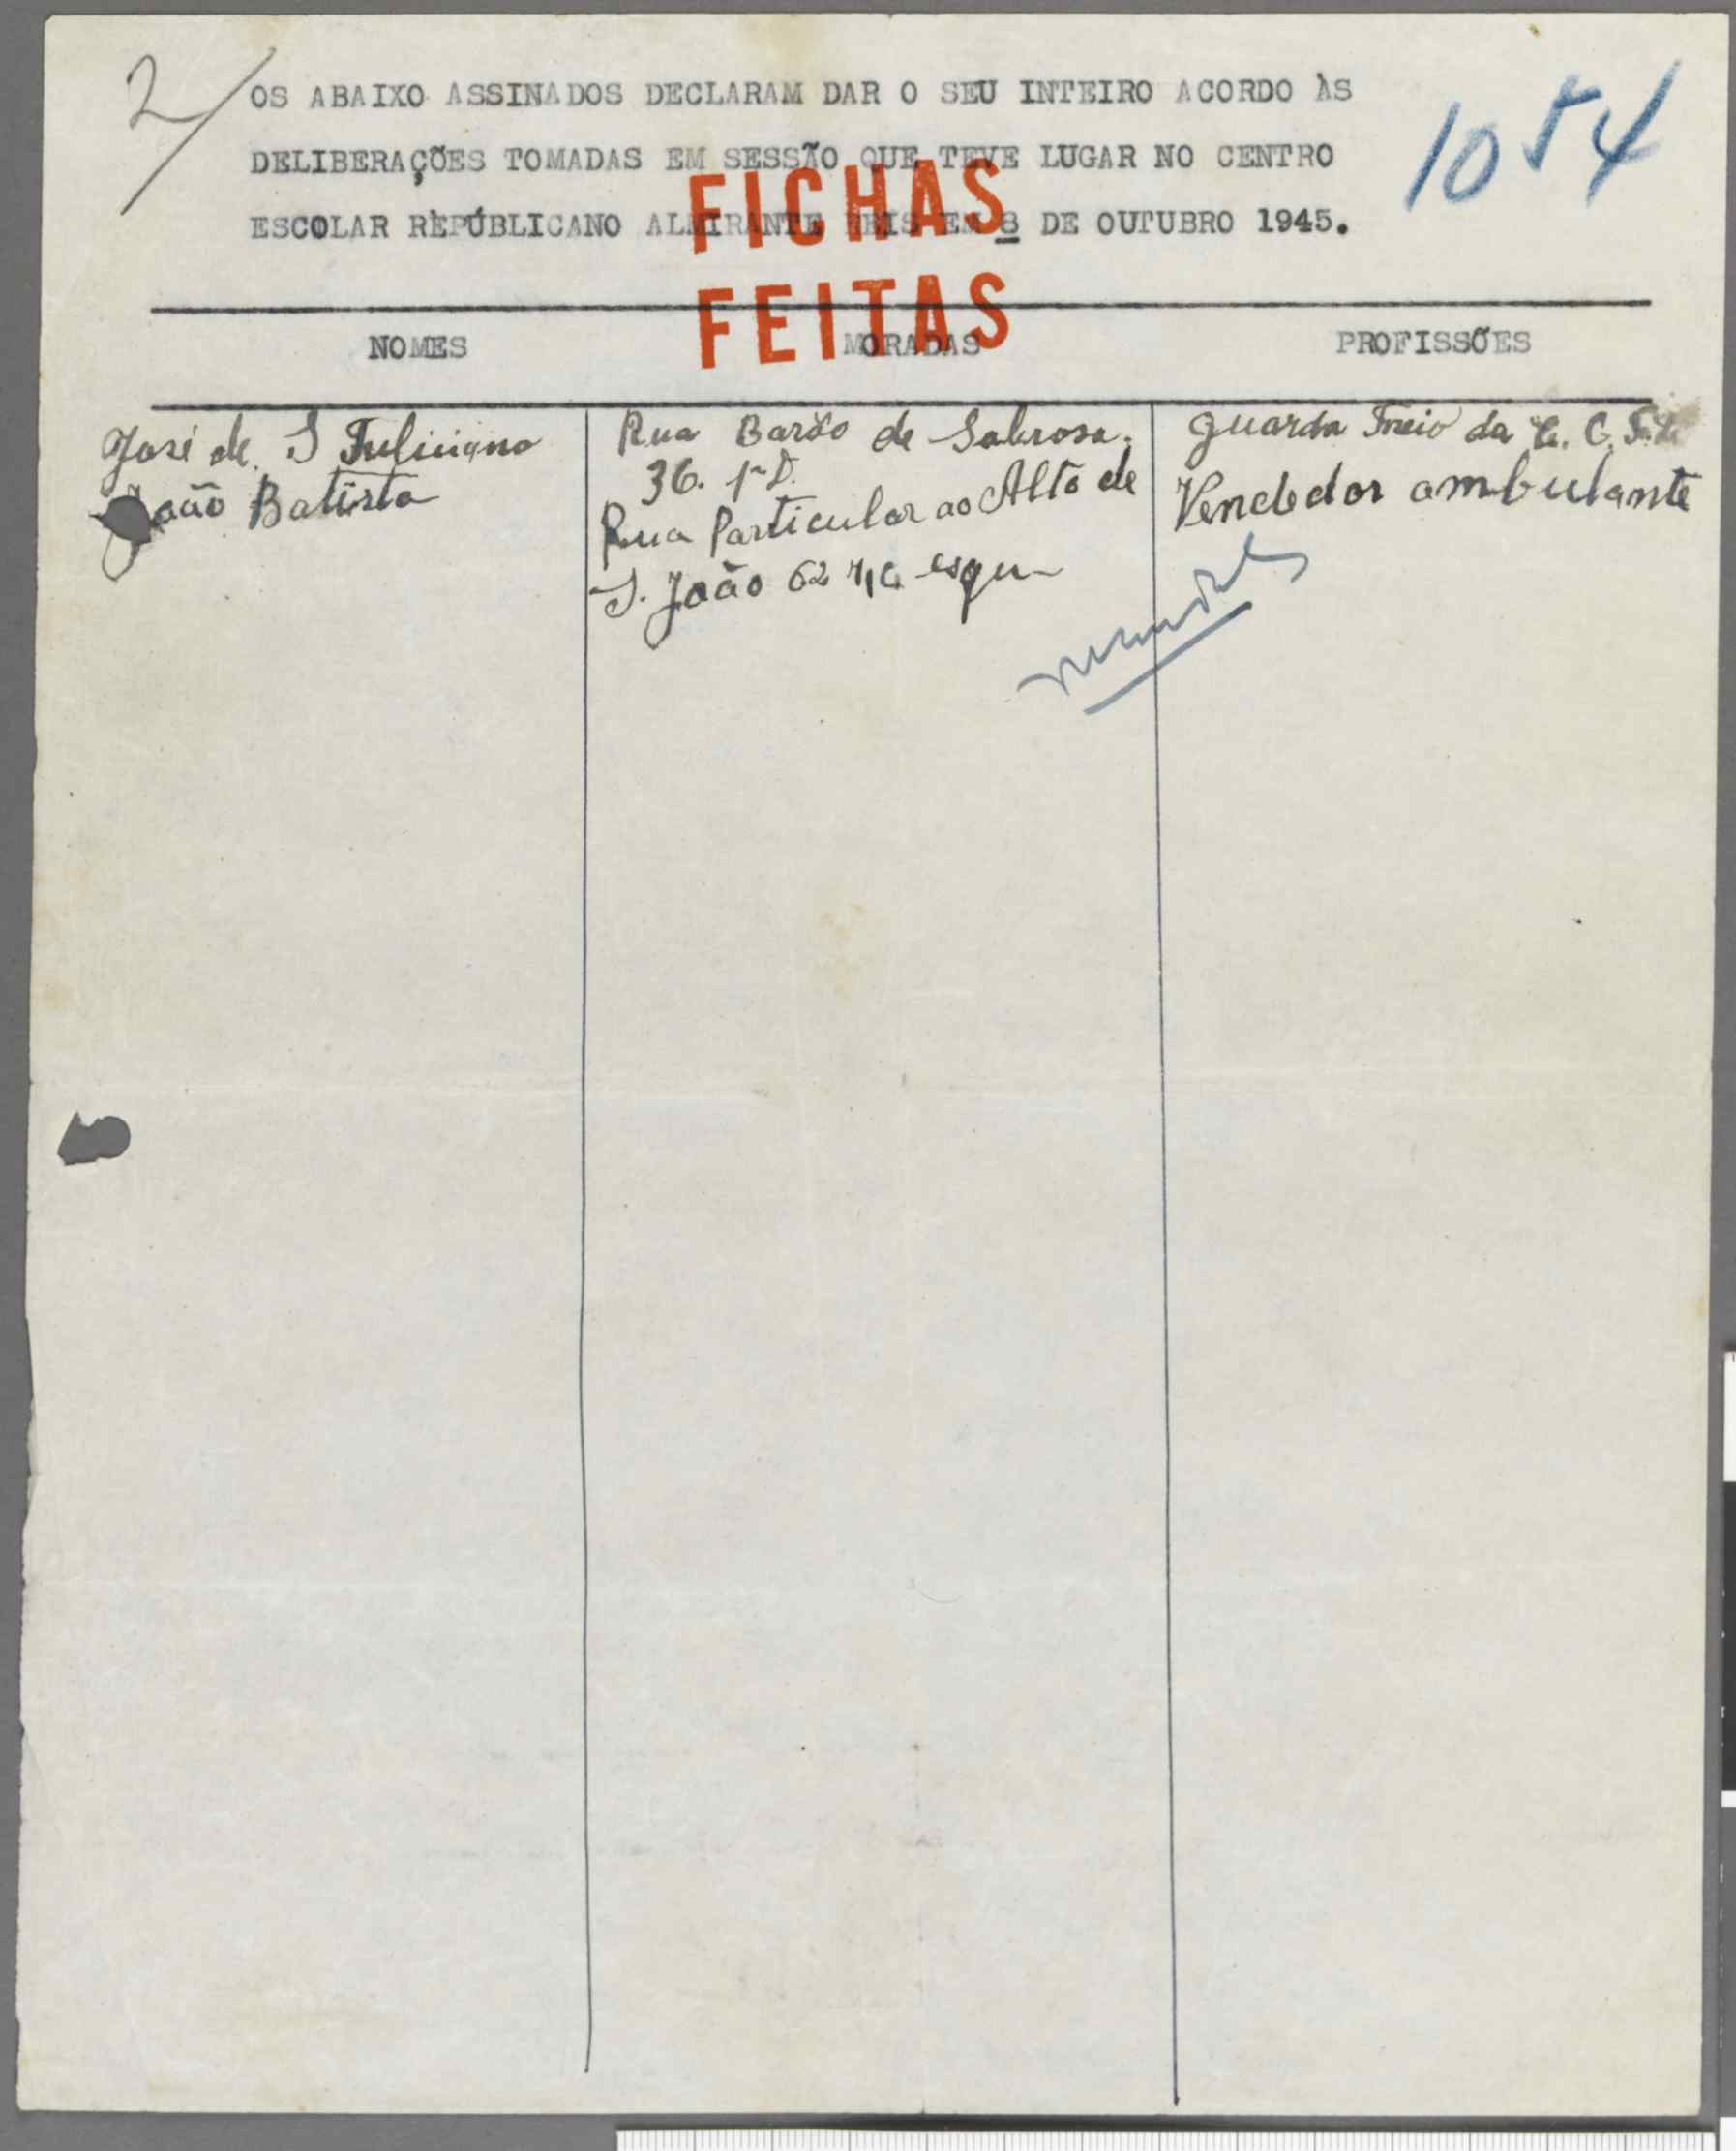 2/
OS ABAIXO ASSINADOS DECLARAM DAR O SEU INTEIRO ACORDO ÀS
1054
DELIBERAÇÕES TOMADAS EM SESSÃO QUE TEVE LUGAR NO CENTRO
ESCOLAR REPÚBLICANO ALMIRANTE REIS EM 8 DE OUTUBRO 1945.
FICHAS
FEITAS
NOMES MORADAS PROFISSÕES
José de S
Rua Barão de Sabrosa.
36. 1º D.
Guarda Freio da
João Batista
Rua Particular ao Alto de
S. João 62 esqu
Vendedor ambulante